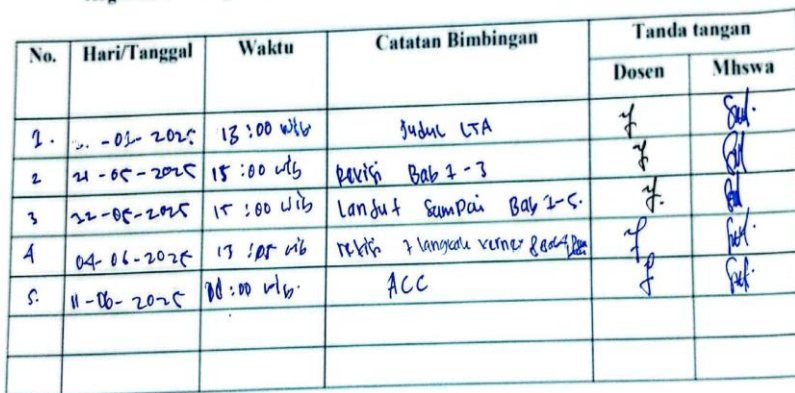 No. Hari/Tanggal Waktu Catatan Bimbingan Tanda tangan
Dosen Mhswa
1. 2025 13:00 wib Judul LTA
2 21-05-2025 15:00 wib Revisi Bab 1-3
3 22-05-2025 15:00 wib Lanjut Sampai Bab 1-5.
4 04-06-2025 13:05 wib revisi 7 langkah
5. 11-06-2025 :00 wib. ACC